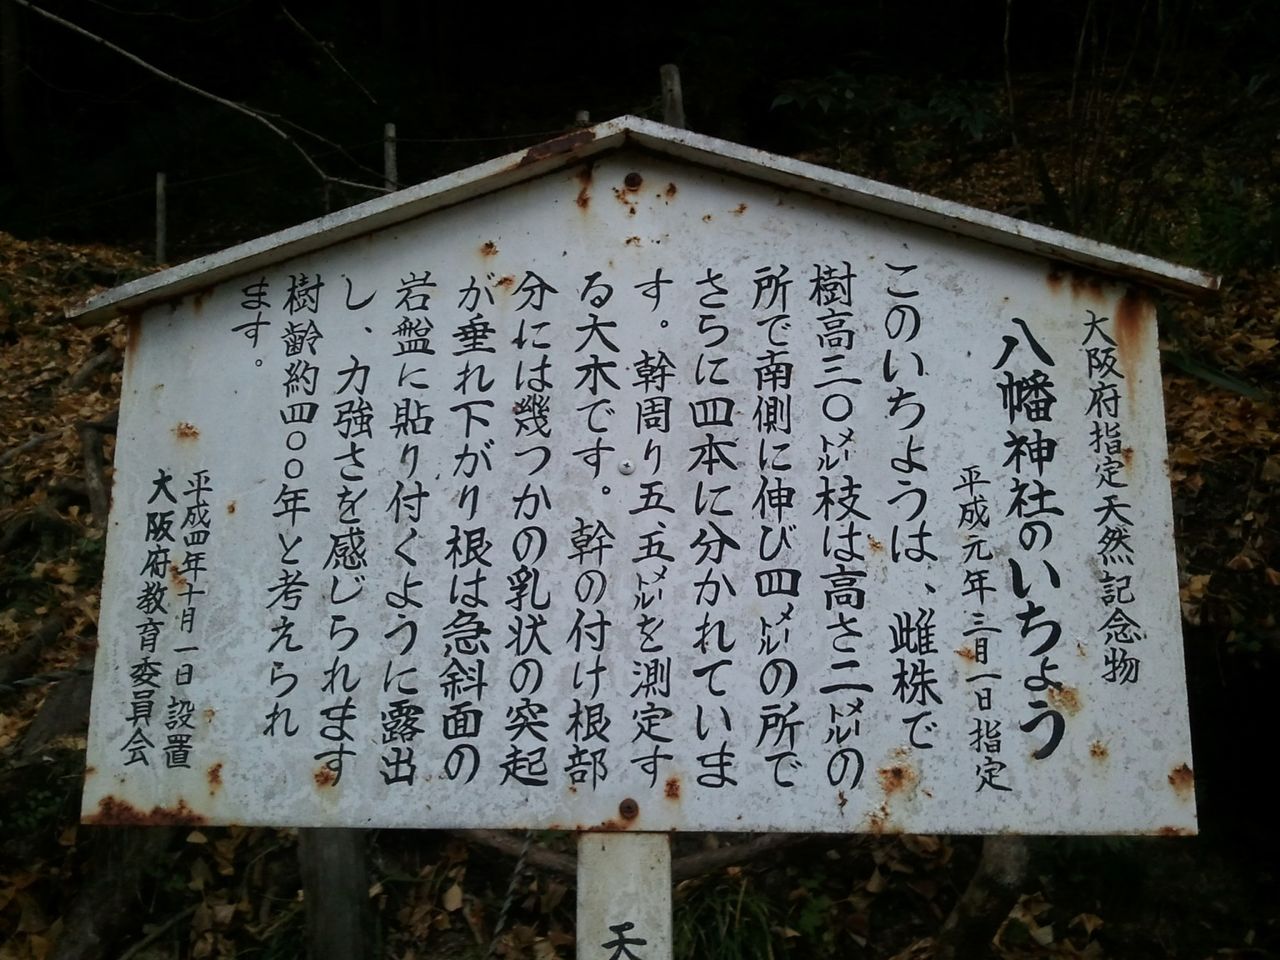 大阪府指定天然記念物
八幡神社のいちょう
平成元年三月一日指定
このいちょうは、雌株で
樹高三〇メートル枝は高さ二メートルの
所で南側に伸び四メートルの所で
さらに四本に分かれていま
す。幹周り五.五メートルを測定す
る大木です。幹の付け根部
分には幾つかの乳状の突起
が垂れ下がり根は急斜面の
岩盤に貼り付くように露出
し、力強さを感じられます
樹齢約四〇〇年と考えられ
ます。
平成四年十月一日設置
大阪府教育委員会
天